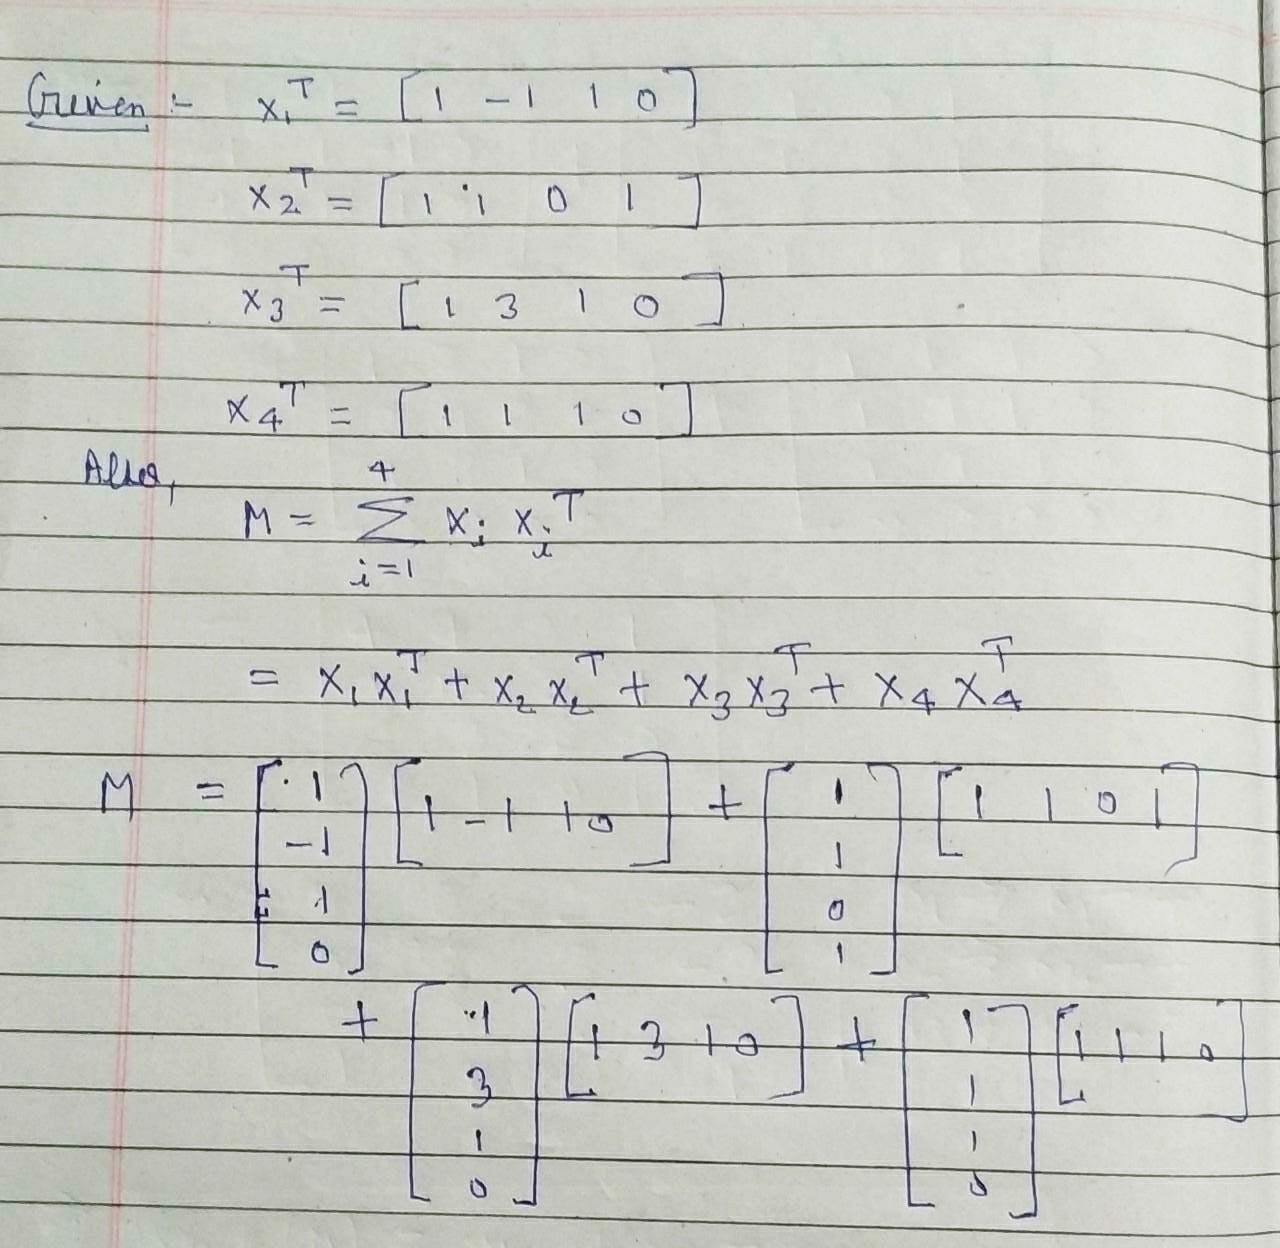 Given :- x₁ᵀ = [ 1 -1 1 0 ]
x₂ᵀ = [ 1 1 0 1 ]
x₃ᵀ = [ 1 3 1 0 ]
x₄ᵀ = [ 1 1 1 0 ]
Also,
4
M = Σ xᵢ xᵢᵀ
i=1
= x₁ x₁ᵀ + x₂ x₂ᵀ + x₃ x₃ᵀ + x₄ x₄ᵀ
M = [ 1 ] [ 1 -1 1 0 ] + [ 1 ] [ 1 1 0 1 ]
[ -1 ] [ 1 ]
[ 1 ] [ 0 ]
[ 0 ] [ 1 ]
+ [ 1 ] [ 1 3 1 0 ] + [ 1 ] [ 1 1 1 0 ]
[ 3 ] [ 1 ]
[ 1 ] [ 1 ]
[ 0 ] [ 0 ]